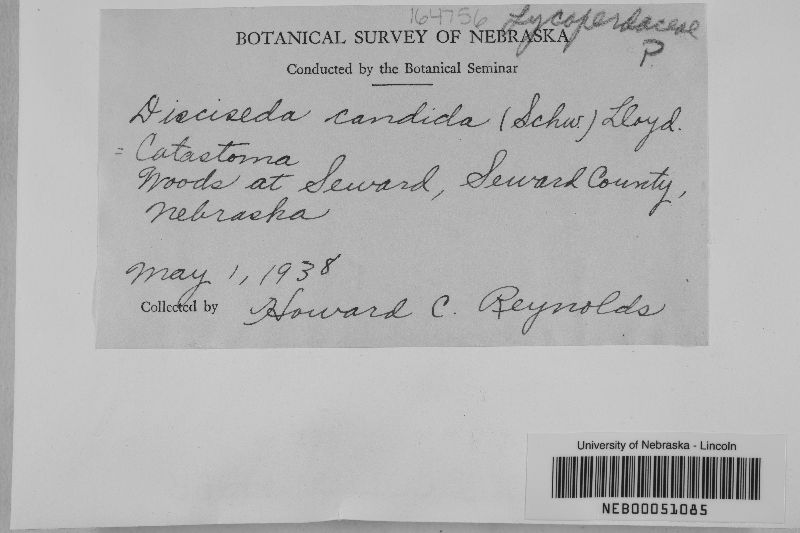 164756 Lycoperdaceae
P.
BOTANICAL SURVEY OF NEBRASKA
Conducted by the Botanical Seminar
Disciseda candida (Schw.) Lloyd.
= Catastoma
Woods at Seward, Seward County,
Nebraska
May 1, 1938
Collected by Howard C. Reynolds
University of Nebraska - Lincoln
NEB00051085